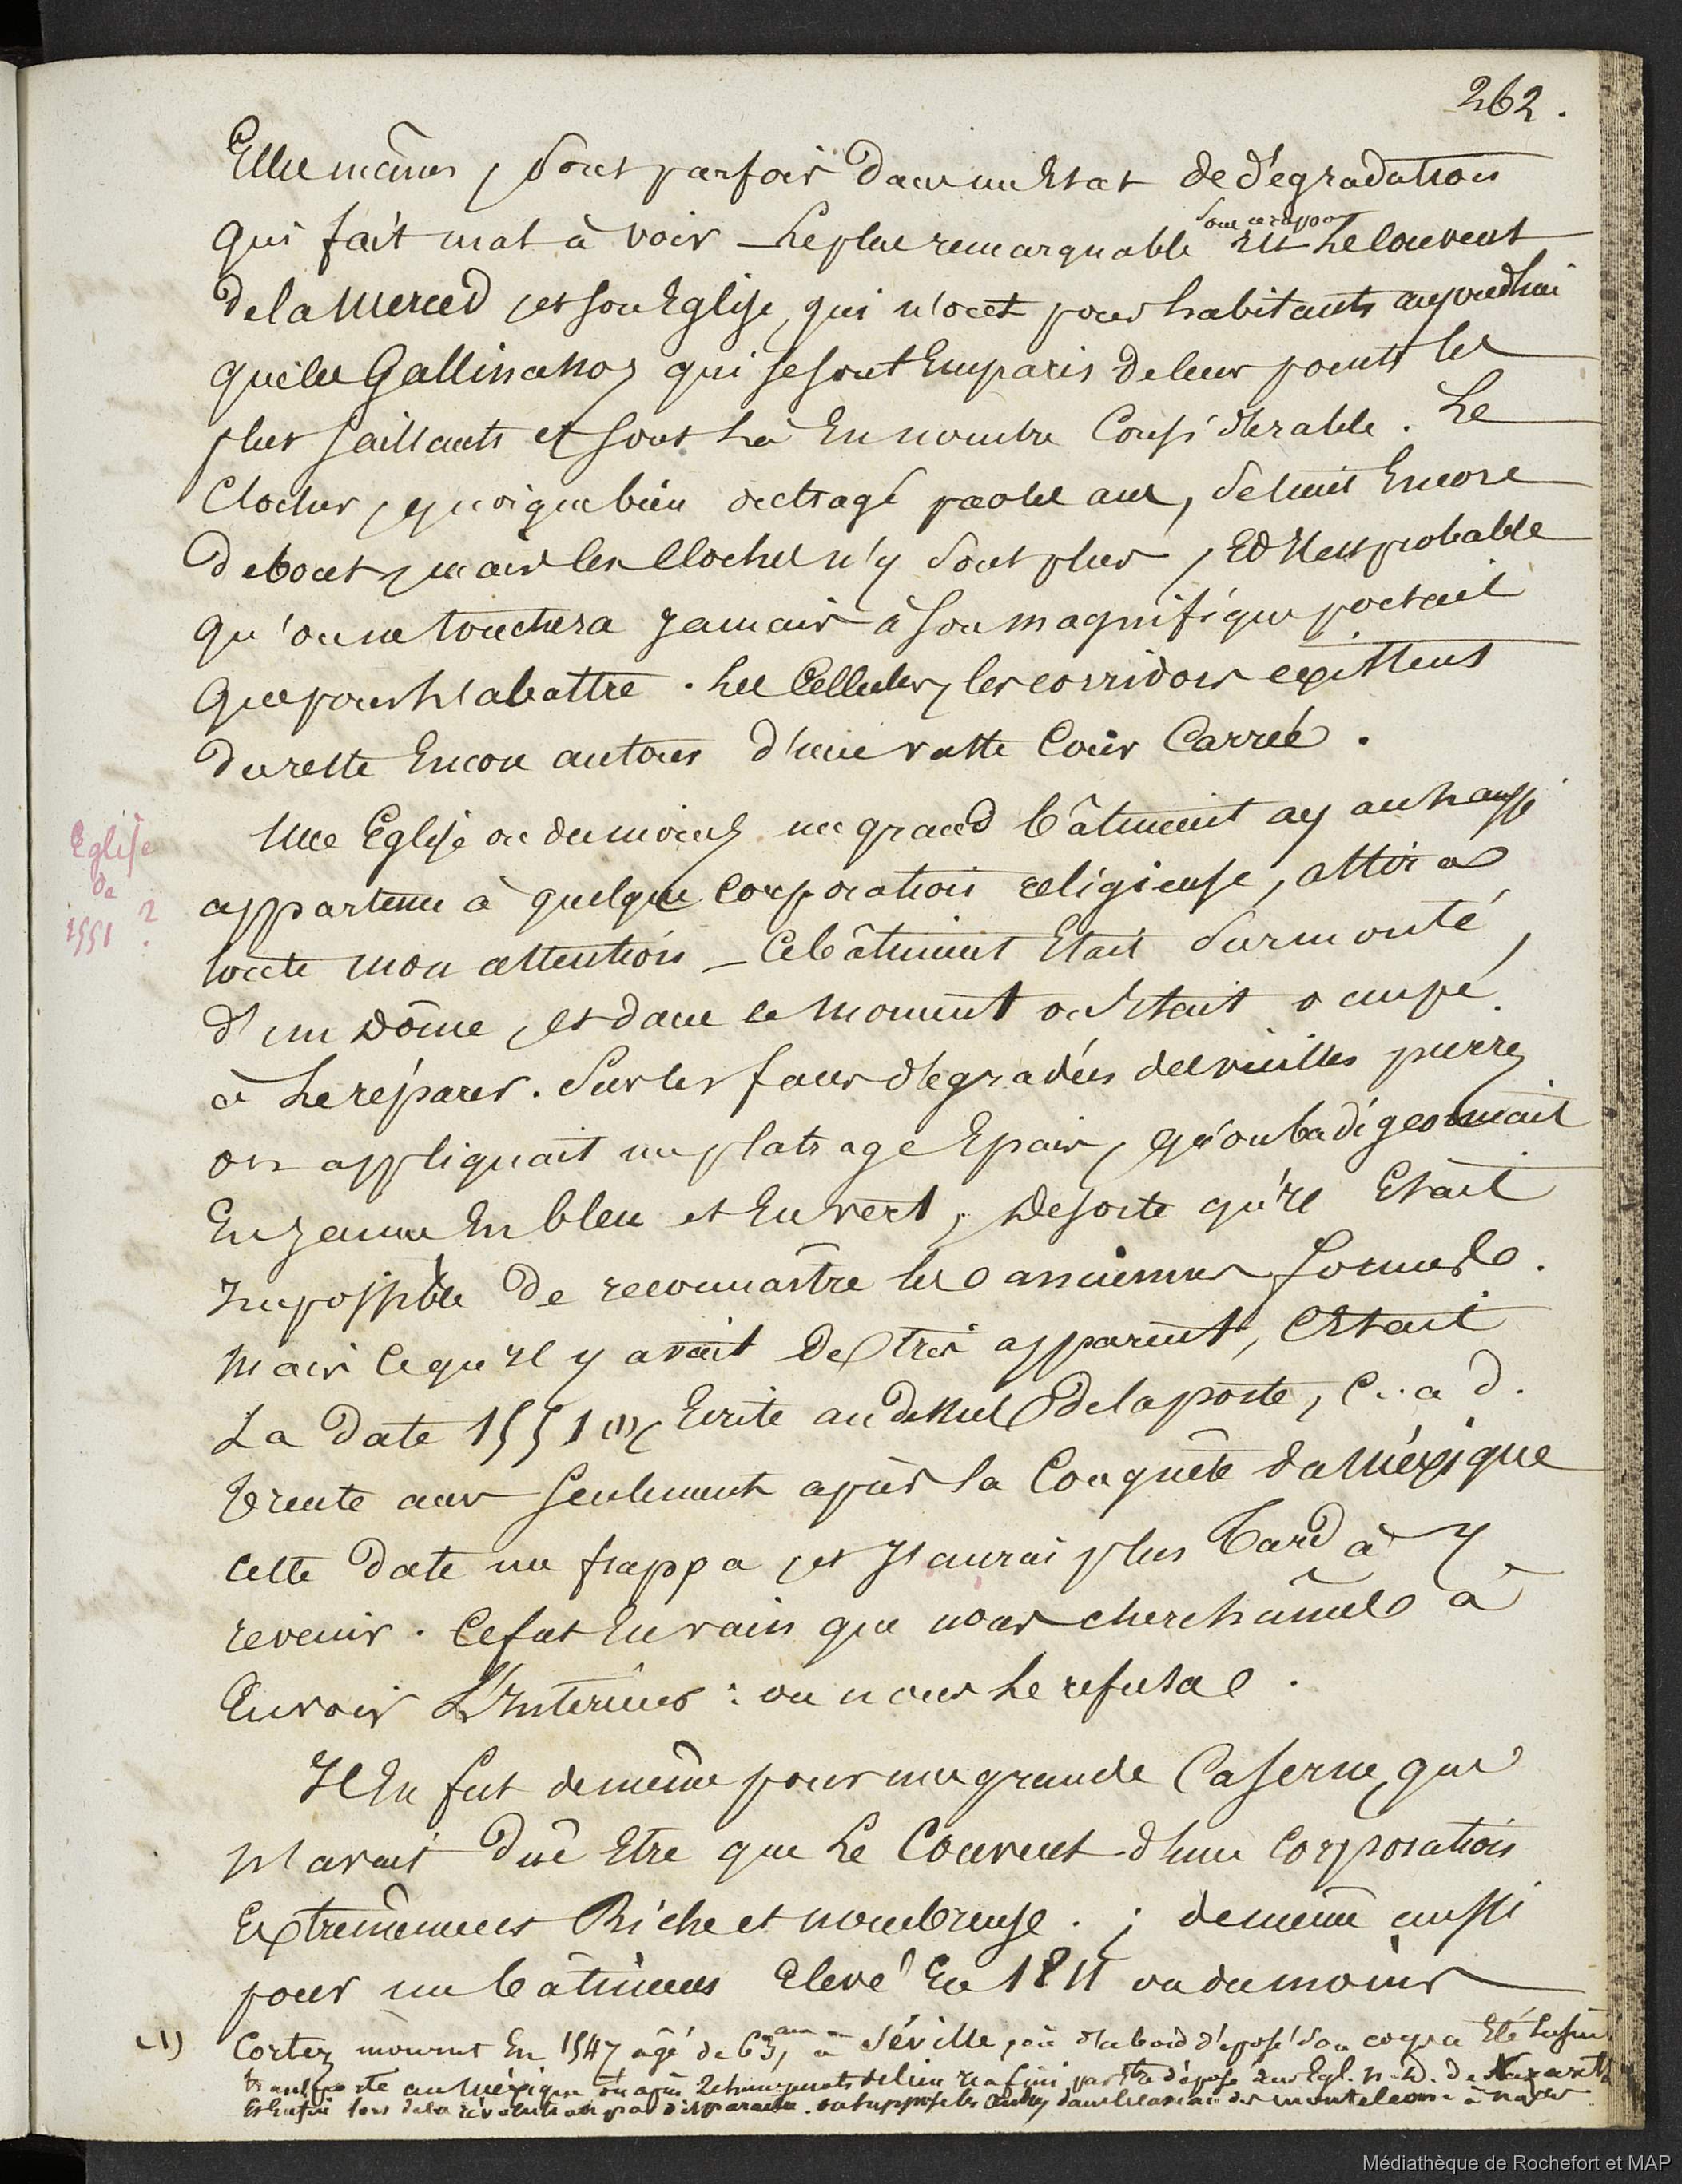 262.
Elles mêmes, sont parfois dans un Etat de dégradation
qui fait mal à voir – Le plus remarquable sous ce rapport est Le Couvent
de la Merced, et son Eglise, qui n'ont pour habitants aujourdhui
que les Gallinasos qui se sont Emparés de leurs points les
plus saillants et sont là En nombre Considérable. Le
Clocher, quoique bien outragé par les ans, se tient Encore
debout, mais les Cloches n'y sont plus, Et Il est probable
qu'on ne touchera Jamais à son magnifique portail
que pour L'abattre. Les Cellules, les corridors existent
du reste Encore autour d'une vaste Cour Carrée.
Une Eglise ou du moins un grand bâtiment ayant aussi
appartenu à quelque Corporation religieuse, attira
toute mon attention – Ce bâtiment Etait surmonté
d'un Dôme, et dans ce moment on Etait occupé
à Le réparer. Sur les faces dégradées des vieilles pierres
on appliquait un platrage Epais, qu'on badigeonnait
En Jaune En bleu et En vert, De sorte qu'il Etait
Impossible de reconnaître les anciennes formes.
Mais Ce qu'il y avait De très apparent, C'Etait
La Date 1551 (1), Ecrite au dessus de la porte, C. a d.
trente ans seulement après la Conquête du Méxique
Cette Date me frappa, et J'aurai plus Tard à y
revenir. Ce fut En vain que nous cherchâmes à
En voir L'Intérieur : on nous Le refusa.
Il En fut de même pour une grande Caserne, qui
n'avait dû Etre que Le Couvent d'une Corporation
Extrêmement Riche et nombreuse. ; de même aussi
pour un bâtiment Elevé En 1811 ou du moins
Eglise
de
1551 ?
(1) Cortez mourut En 1547 âgé de 63 ans, à Séville, où d'abord déposé son corps a Eté Ensuite
transporté au Méxique où après changements de lieu Il a fini par être déposé dans Egl. N. D. de Nazareth
Et Enfin lors de la révolution a disparu. on suppose les dans le des Monteleone à